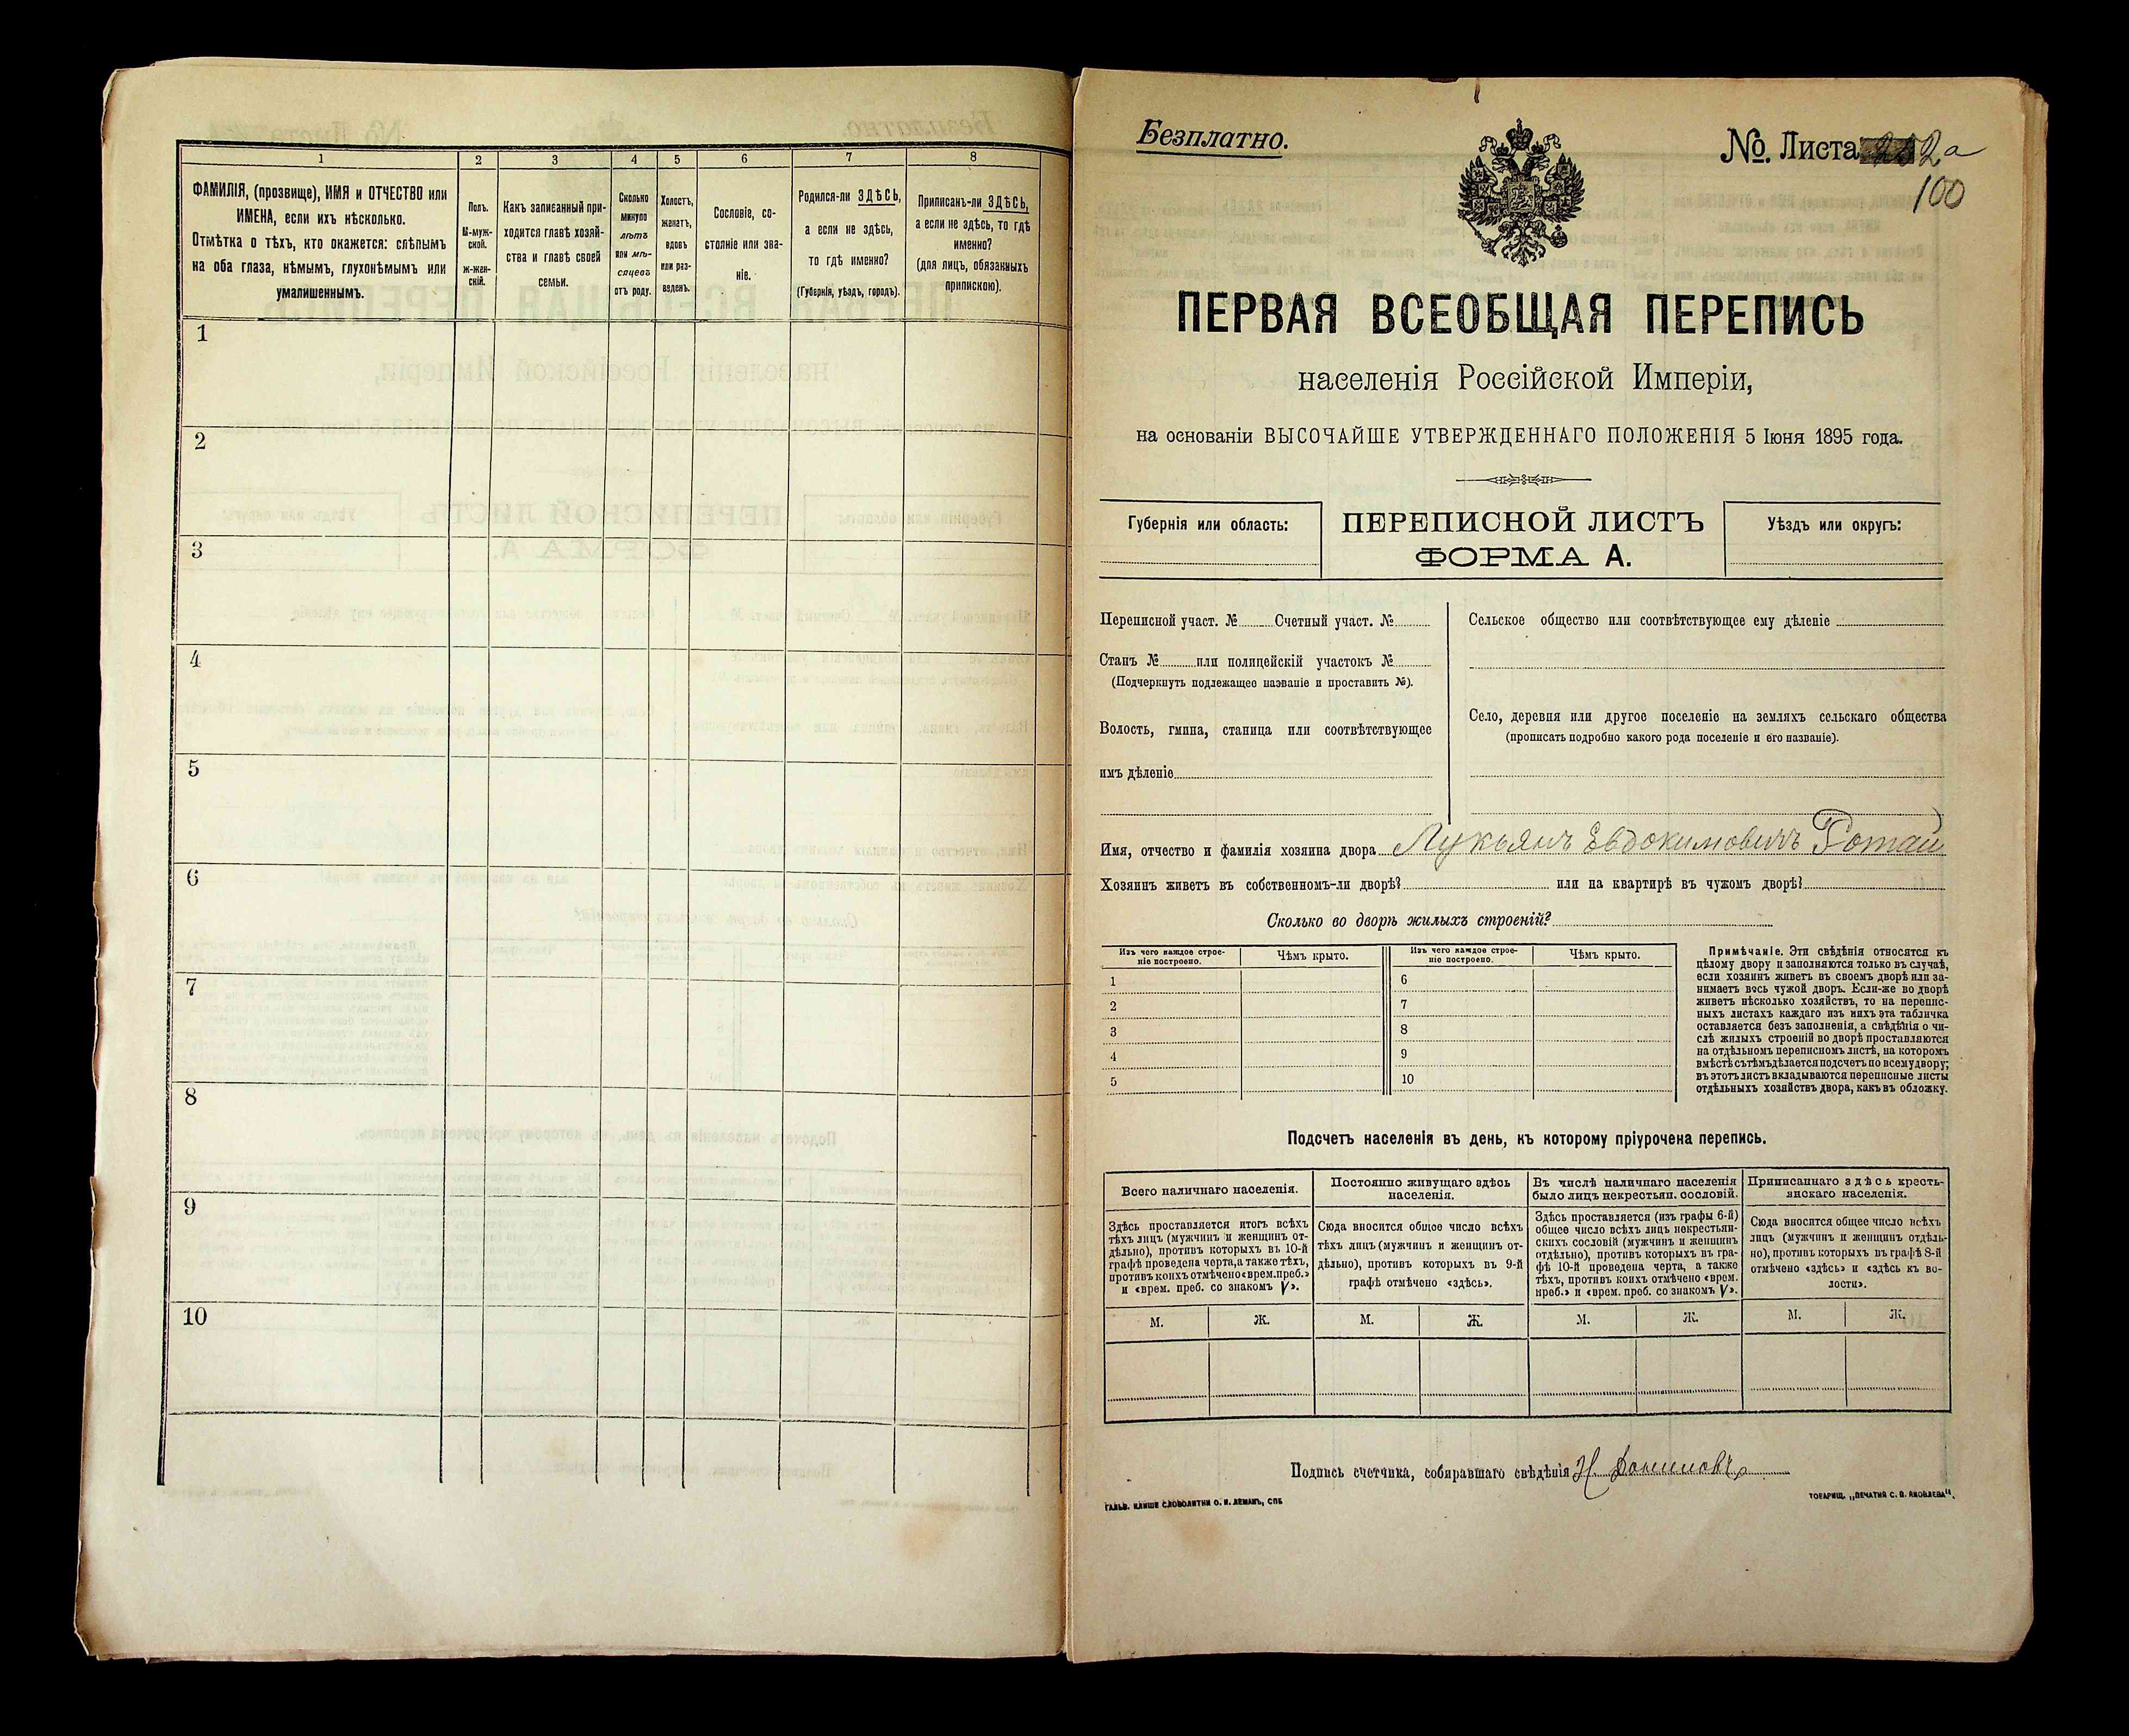 1 2 3 4 5 6 7 8
ФАМИЛІЯ, (прозвище), ИМЯ и ОТЧЕСТВО или
ИМЕНА, если ихъ нѣсколько.
Отмѣтка о тѣхъ, кто окажется: слѣпымъ
на оба глаза, нѣмымъ, глухонѣмымъ или
умалишеннымъ.
Полъ.
М-муж-
ской.
ж-жен-
скій.
Какъ записанный при-
ходится главѣ хозяй-
ства и главѣ своей
семьи.
Сколько
минуло
лѣтъ
или мѣ-
сяцевъ
отъ роду.
Холостъ,
женатъ,
вдовъ
или раз-
веденъ.
Сословіе, со-
стояніе или зва-
ніе.
Родился-ли ЗДѢСЬ,
а если не здѣсь,
то гдѣ именно?
(Губернія, уѣздъ, городъ).
Приписанъ-ли ЗДѢСЬ,
а если не здѣсь, то гдѣ
именно?
(для лицъ, обязанныхъ
припискою).
1
2
3
4
5
6
7
8
9
10
Безплатно.
№. Листа 2а
100
ПЕРВАЯ ВСЕОБЩАЯ ПЕРЕПИСЬ
населенія Россійской Имперіи,
на основаніи ВЫСОЧАЙШЕ УТВЕРЖДЕННАГО ПОЛОЖЕНІЯ 5 Іюня 1895 года.
Губернія или область:
ПЕРЕПИСНОЙ ЛИСТЪ
ФОРМА А.
Уѣздъ или округъ:
Переписной участ. № Счетный участ. №
Станъ № или полицейскій участокъ №
(Подчеркнуть подлежащее названіе и проставить №).
Волость, гмина, станица или соотвѣтствующее
имъ дѣленіе
Сельское общество или соотвѣтствующее ему дѣленіе
Село, деревня или другое поселеніе на земляхъ сельскаго общества
(прописать подробно какого рода поселеніе и его названіе).
Имя, отчество и фамилія хозяина двора Лукьянъ Евдокимовичъ Ротай
Хозяинъ живетъ въ собственномъ-ли дворѣ? или на квартирѣ въ чужомъ дворѣ?
Сколько во дворѣ жилыхъ строеній?
Изъ чего каждое строе-
ніе построено.
Чѣмъ крыто.
Изъ чего каждое строе-
ніе построено.
Чѣмъ крыто.
1 6
2 7
3 8
4 9
5 10
Примѣчаніе. Эти свѣдѣнія относятся къ
цѣлому двору и заполняются только въ случаѣ,
если хозяинъ живетъ въ своемъ дворѣ или за-
нимаетъ весь чужой дворъ. Если-же во дворѣ
живетъ нѣсколько хозяйствъ, то на перепис-
ныхъ листахъ каждаго изъ нихъ эта табличка
оставляется безъ заполненія, а свѣдѣнія о чи-
слѣ жилыхъ строеній во дворѣ проставляются
на отдѣльномъ переписномъ листѣ, на которомъ
вмѣстѣ съ тѣмъ дѣлается подсчетъ по всему двору;
въ этотъ листъ вкладываются переписные листы
отдѣльныхъ хозяйствъ двора, какъ въ обложку.
Подсчетъ населенія въ день, къ которому пріурочена перепись.
Всего наличнаго населенія.
Здѣсь проставляется итогъ всѣхъ
тѣхъ лицъ (мужчинъ и женщинъ от-
дѣльно), противъ которыхъ въ 10-й
графѣ проведена черта, а также тѣхъ,
противъ коихъ отмѣчено «врем. преб.»
и «врем. преб. со знакомъ V».
Постоянно живущаго здѣсь
населенія.
Сюда вносится общее число всѣхъ
тѣхъ лицъ (мужчинъ и женщинъ от-
дѣльно), противъ которыхъ въ 9-й
графѣ отмѣчено «здѣсь».
Въ числѣ наличнаго населенія
было лицъ некрестьян. сословій.
Здѣсь проставляется (изъ графы 6-й)
общее число всѣхъ лицъ некрестьян-
скихъ сословій (мужчинъ и женщинъ
отдѣльно), противъ которыхъ въ гра-
фѣ 10-й проведена черта, а также
тѣхъ, противъ коихъ отмѣчено «врем.
преб.» и «врем. преб. со знакомъ V».
Приписаннаго здѣсь кресть-
янскаго населенія.
Сюда вносится общее число всѣхъ
лицъ (мужчинъ и женщинъ отдѣль-
но), противъ которыхъ въ графѣ 8-й
отмѣчено «здѣсь» и «здѣсь къ во-
лости».
М. Ж. М. Ж. М. Ж. М. Ж.
Подпись счетчика, собиравшаго свѣдѣнія
ГАЛЬВ. КЛИШЕ СЛОВОЛИТНИ О. И. ЛЕМАНЪ, СПБ
ТОВАРИЩ. „ПЕЧАТНЯ С. П. ЯКОВЛЕВА".